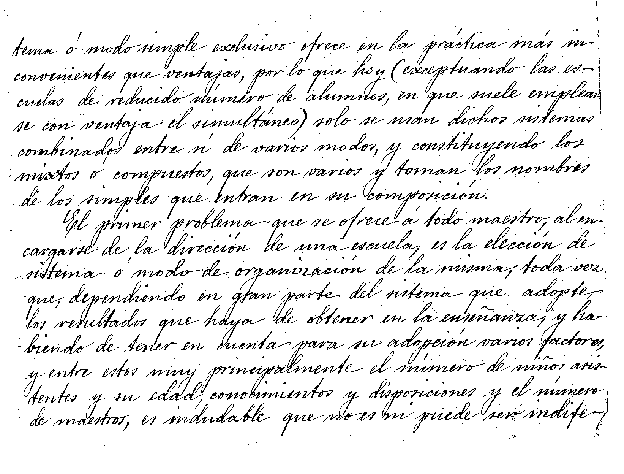 tema ó modo simple exclusivo ofrece en la práctica más in-
convenientes que ventajas, por lo que hoy (exceptuando las es-
cuelas de reducido número de alumnos, en que suele emplear
se con ventaja el simultáneo) solo se usan dichos sistemas
combinados entre sí de varios modos, y constituyendo los
mixtos o compuestos, que son varios y toman los nombres
de los simples que entran en su composición.
El primer problema que se ofrece a todo maestro, al en-
cargarse de la dirección de una escuela, es la elección de
sistema o modo de organización de la misma, toda vez
que, dependiendo en gran parte del sistema que adopte,
los resultados que haya de obtener en la enseñanza, y ha-
biendo de tener en cuenta para su adopción varios factores,
y entre estos muy principalmente el número de niños asis-
tentes y su edad, conocimientos y disposiciones y el número
de maestros, es indudable que no es ni puede ser indife-